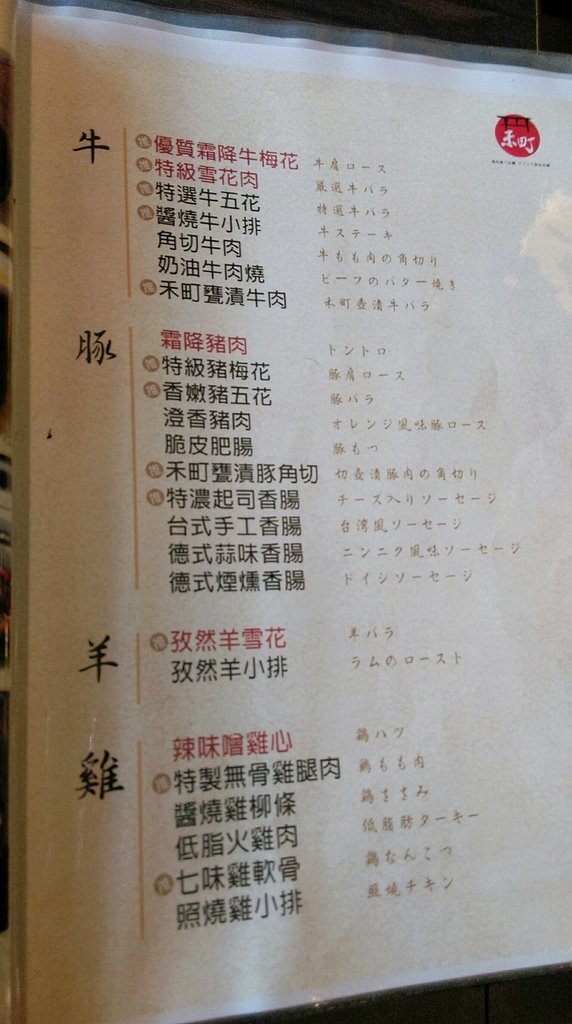 禾町
牛
推 優質霜降牛梅花 牛肩ロース
推 特級雪花肉 厳選牛バラ
推 特選牛五花 特選牛バラ
推 醬燒牛小排 牛ステーキ
角切牛肉 牛もも肉の角切り
奶油牛肉燒 ビーフのバター焼き
推 禾町甕漬牛肉 禾町壺漬牛バラ
豚
霜降豬肉 トントロ
推 特級豬梅花 豚肩ロース
推 香嫩豬五花 豚バラ
澄香豬肉 オレンジ風味豚ロース
脆皮肥腸 豚もつ
推 禾町甕漬豚角切 切壺漬豚肉の角切り
推 特濃起司香腸 チーズ入りソーセージ
台式手工香腸 台湾風ソーセージ
德式蒜味香腸 ニンニク風味ソーセージ
德式煙燻香腸 ドイツソーセージ
羊
推 孜然羊雪花 羊バラ
孜然羊小排 ラムのロースト
雞
辣味噌雞心 鶏ハツ
推 特製無骨雞腿肉 鶏もも肉
醬燒雞柳條 鶏ささみ
低脂火雞肉 低脂肪ターキー
推 七味雞軟骨 鶏なんこつ
照燒雞小排 照焼チキン